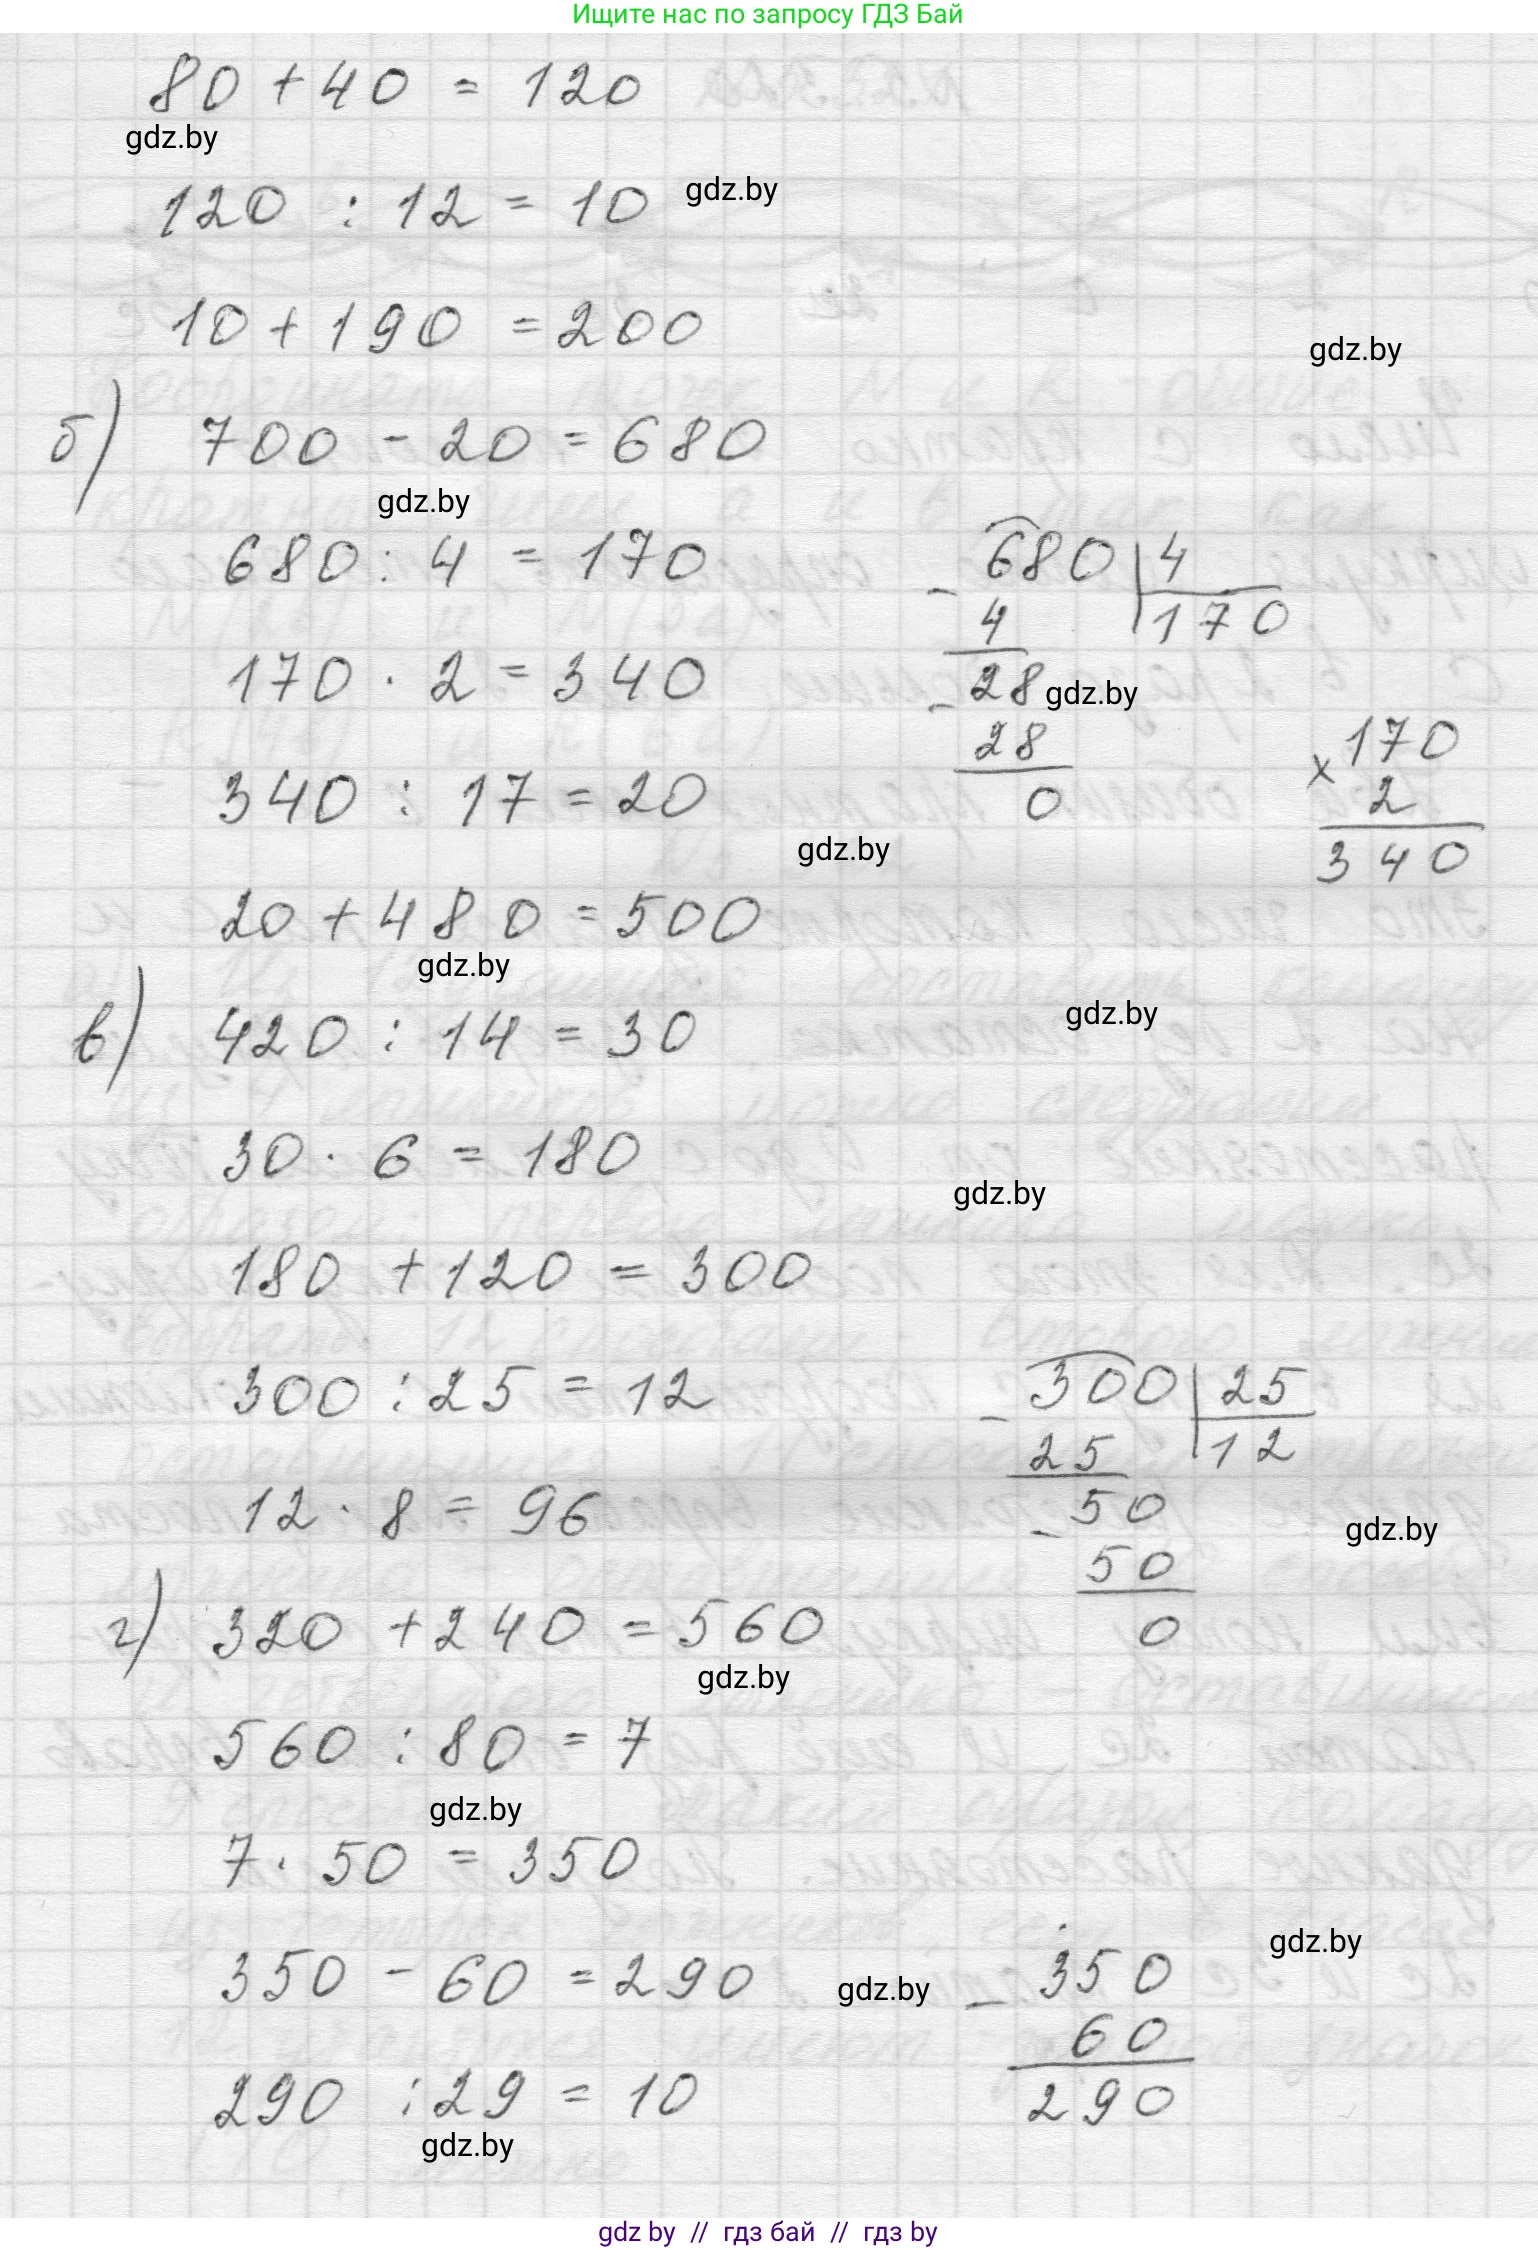 Ищите нас по запросу ГДЗ Бай
80 + 40 = 120
gdz.by
120 : 12 = 10
gdz.by
10 + 190 = 200
gdz.by
б) 700 - 20 = 680
gdz.by
680 : 4 = 170
680 | 4
- 4
170
170 · 2 = 340
- 28
gdz.by
28
0
170
× 2
340
340 : 17 = 20
gdz.by
20 + 480 = 500
gdz.by
в) 420 : 14 = 30
gdz.by
30 · 6 = 180
gdz.by
180 + 120 = 300
300 : 25 = 12
300 | 25
- 25
12
12 · 8 = 96
- 50
50
0
gdz.by
г) 320 + 240 = 560
gdz.by
560 : 80 = 7
gdz.by
7 · 50 = 350
350 - 60 = 290
gdz.by
350
- 60
290
gdz.by
290 : 29 = 10
gdz.by
gdz by // гдз бай // гдз by